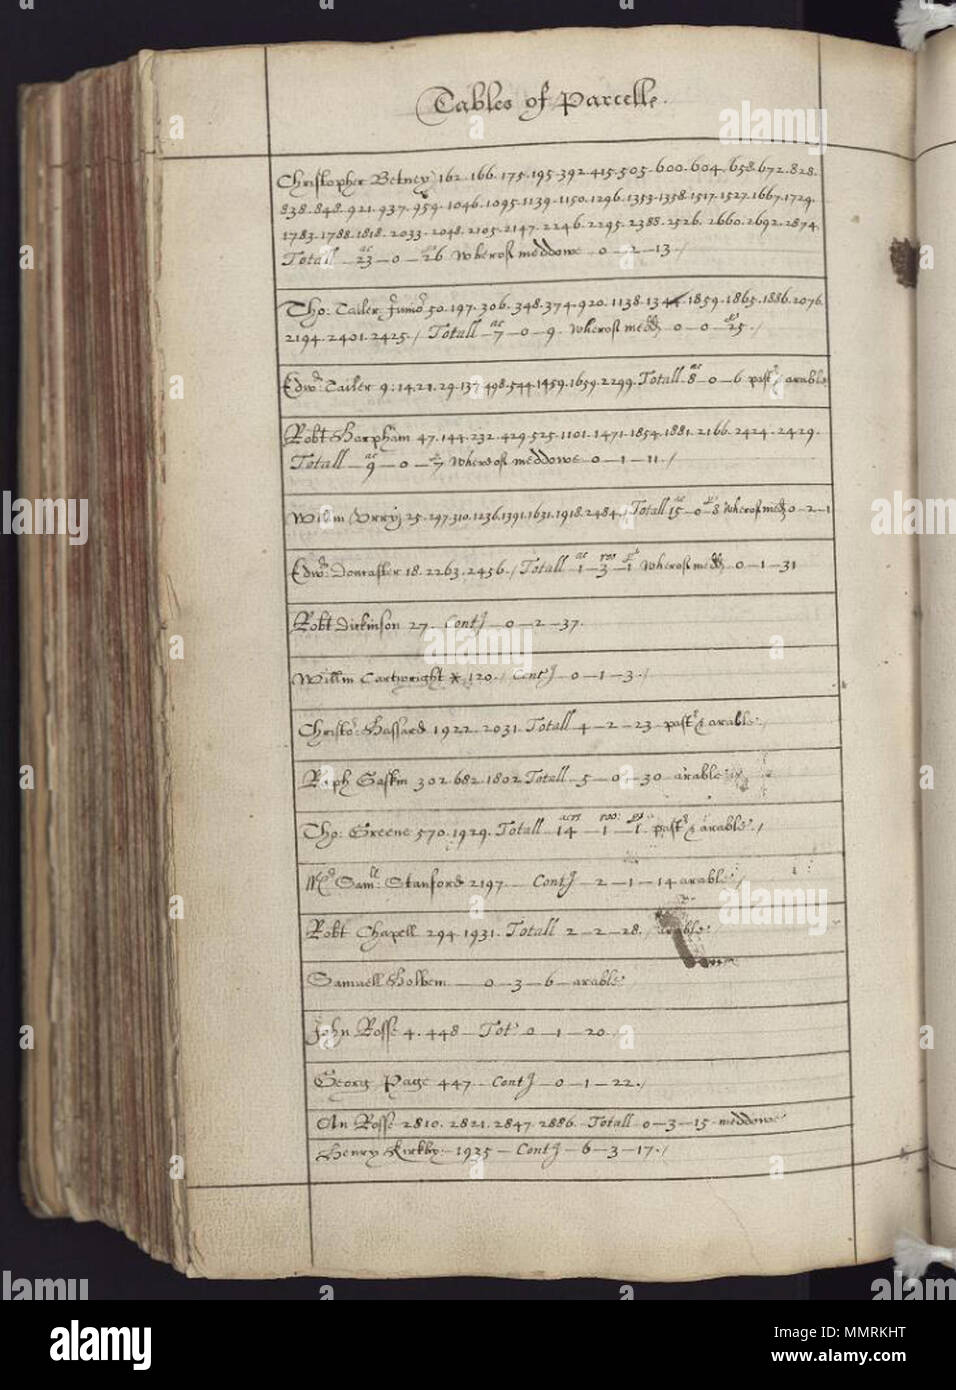 Tables of Parcelle.
Christopher Betney 162. 166. 175. 195. 392. 415. 505. 600. 604. 658. 672. 828.
838. 848. 921. 937. 959. 1046. 1095. 1139. 1150. 1296. 1353. 1358. 1517. 1527. 1667. 1729.
1783. 1788. 1818. 2033. 2048. 2105. 2147. 2246. 2295. 2388. 2526. 2660. 2692. 2874.
Totall — 23 — 0 — 26 Wherof meddowe 0 — 2 — 13 /
Tho: Tailer Junio^r 50. 197. 306. 348. 374. 920. 1138. 1344. 1859. 1865. 1886. 2076.
2194. 2401. 2425. / Totall — 7 — 0 — 9. Wherof medd 0 — 0 — 25. /
Edw: Tailer 9. 14. 21. 29. 137. 498. 544. 1459. 1659. 2299. Totall 8 — 0 — 6 past & arable
Robt Harpham 47. 144. 232. 429. 525. 1101. 1471. 1854. 1881. 2166. 2424. 2429.
Totall — 9 — 0 — 7 Whereof meddowe 0 — 1 — 11. /
Willm Urry 25. 297. 310. 1236. 1391. 1631. 1918. 2484. / Totall 15 — 0 — 8 Wherof med 0 — 2 — 1
Edw: Doncaster 18. 2263. 2456. / Totall 1 — 3 — 1 Wherof medd 0 — 1 — 31
Robt Dickinson 27. Cont 0 — 2 — 37.
Willm Cartwright * 120. / Cont 0 — 1 — 3. /
Christo: Hassard 1922. 2031. Totall 4 — 2 — 23 past & arable. /
Raph Gaskin 302. 682. 1802 Totall — 5 — 0 — 30 arable
Tho: Greene 570. 1929. Totall 14 — 1 — 1 past & arable. /
Mr Sam: Stanford 2197 — Cont — 2 — 1 — 14 arable /
Robt Chapell 294. 1931. Totall 2 — 2 — 28. / arable
Samuell Holbem — 0 — 3 — 6 — arable
John Rosse 4. 448 — Tot: 0 — 1 — 20
Georg Page 447 — Cont — 0 — 1 — 22. /
An Rosse 2810. 2821. 2847. 2886. Totall 0 — 3 — 15 meddowe
Henry Kirkby — 1925 — Cont — 6 — 3 — 17. /
alamy
alamy
Image ID: MMRKHT
www.alamy.com